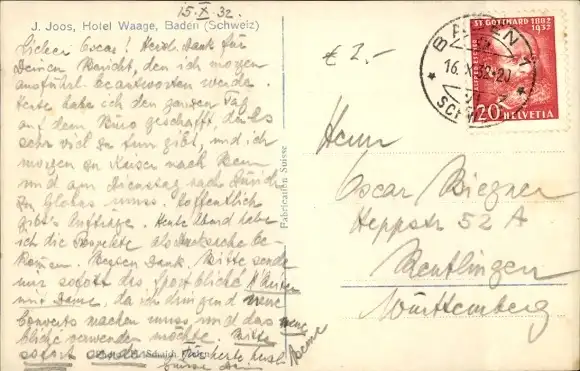 15.X.32.
J. Joos, Hotel Waage, Baden (Schweiz)
Lieber Oscar! Herzl. Dank für
Deinen Bericht, den ich morgen
ausführl. beantworten werde.
Heute habe ich den ganzen Tag
auf dem Büro geschafft, da es
sehr viel zu tun gibt, und ich
morgen zu Kaiser nach Bern
und am Dienstag nach Zürich
zu Globus muss. Hoffentlich
gibt's Aufträge. Heute Abend habe
ich die Prospekte als Drucksache be-
kommen. Besten Dank. Bitte sende
mir sofort das Sportbliché
mit Dame, da ich dringend neue
Converts machen muss und das
bliché verwenden möchte. Bitte
sofort senden
Fabrication Suisse
€ 2.-
BADEN 1
16.X.32-20
ST. GOTTHARD 1882
1932
20 HELVETIA
Herrn
Oscar Biegner
Heppstr 52 A
Reutlingen
Württemberg